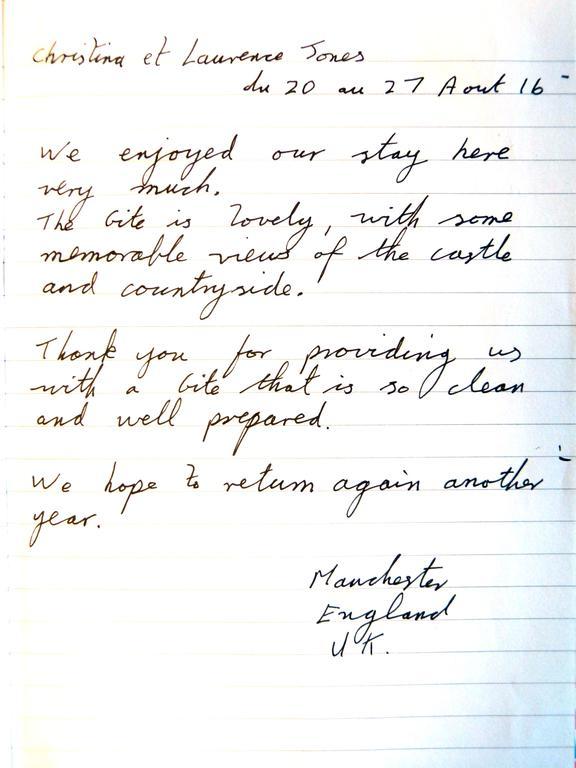 Christina et Laurence Jones
du 20 au 27 Aout 16
We enjoyed our stay here
very much.
The Gite is lovely, with some
memorable views of the castle
and countryside.
Thank you for providing us
with a Gite that is so clean
and well prepared.
We hope to return again another
year.
Manchester
England
UK.